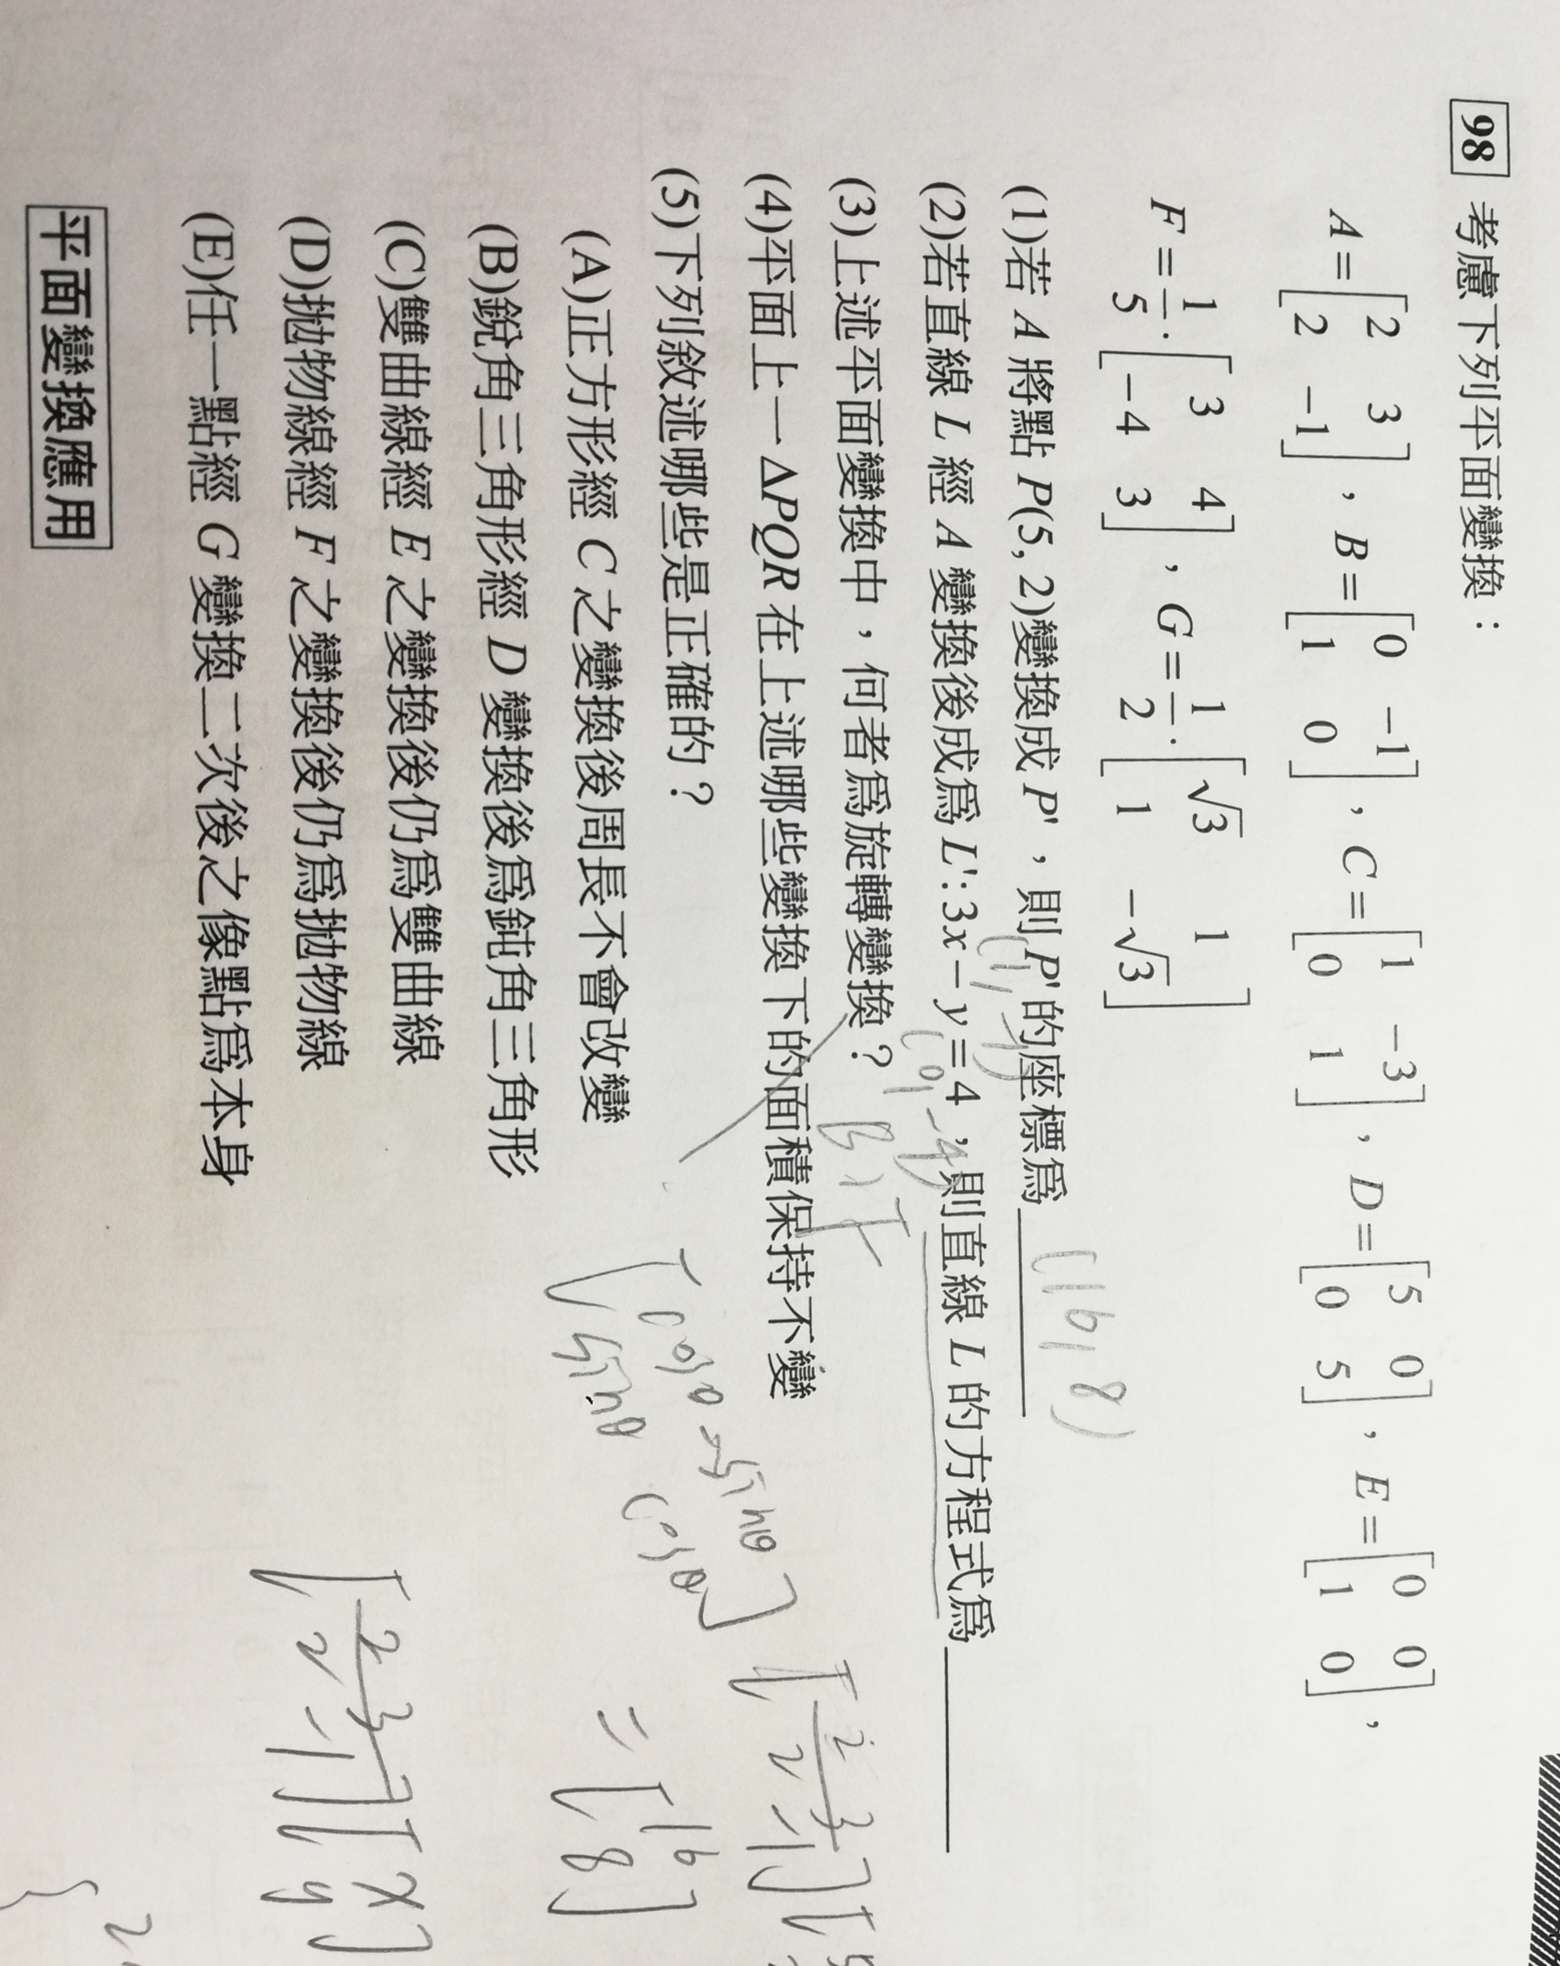 98 考慮下列平面變換：
A = [2 3; 2 -1] , B = [0 -1; 1 0] , C = [1 -3; 0 1] , D = [5 0; 0 5] , E = [0 0; 1 0] ,
F = 1/5 · [3 4; -4 3] , G = 1/2 · [√3 1; 1 -√3]
(1)若 A 將點 P(5, 2)變換成 P'，則 P'的座標爲 (16, 8)
(2)若直線 L 經 A 變換後成爲 L': 3x - y = 4，則直線 L 的方程式爲
(3)上述平面變換中，何者爲旋轉變換？ B, F
(4)平面上一 ΔPQR 在上述哪些變換下的面積保持不變
(5)下列敘述哪些是正確的？
(A)正方形經 C 之變換後周長不會改變
(B)銳角三角形經 D 變換後爲鈍角三角形
(C)雙曲線經 E 之變換後仍爲雙曲線
(D)拋物線經 F 之變換後仍爲拋物線
(E)任一點經 G 變換二次後之像點爲本身
(0, -4)
[cosθ -sinθ; sinθ cosθ]
[2 3; 2 -1]
= [16; 8]
[2 3; 2 -1] [x; y]
平面變換應用